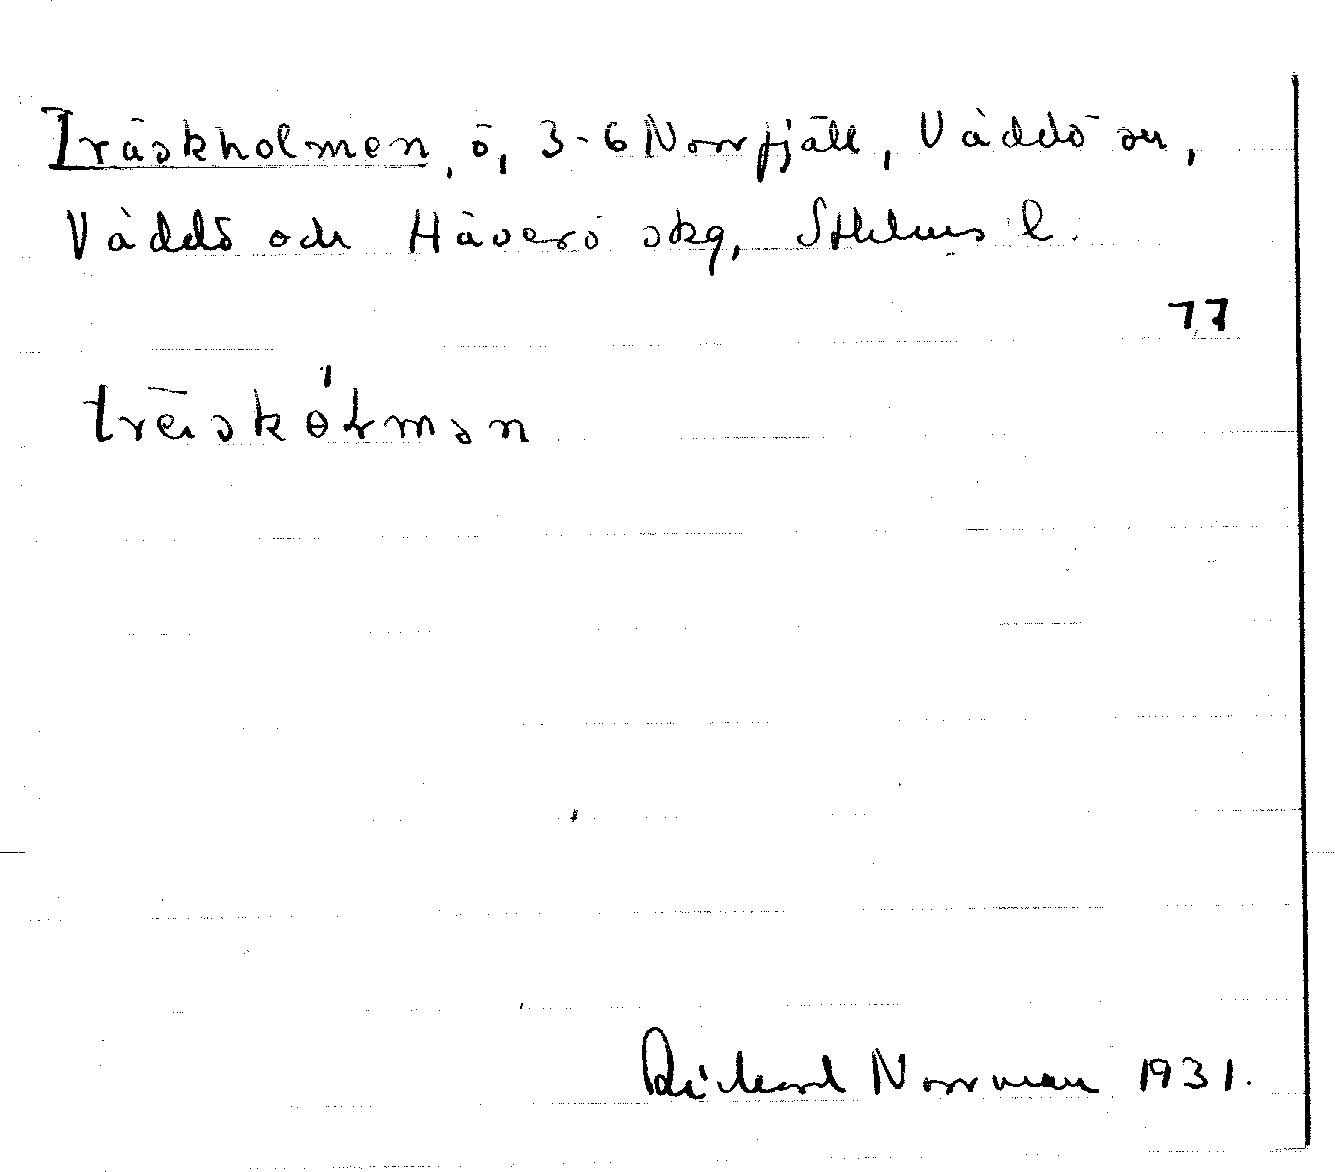 Träskholmen, ö, 3-6 Norrfjäll, Väddö sn,
Väddö och Häverö skg, Sthlms l.
77
Rickard Norrman 1931.